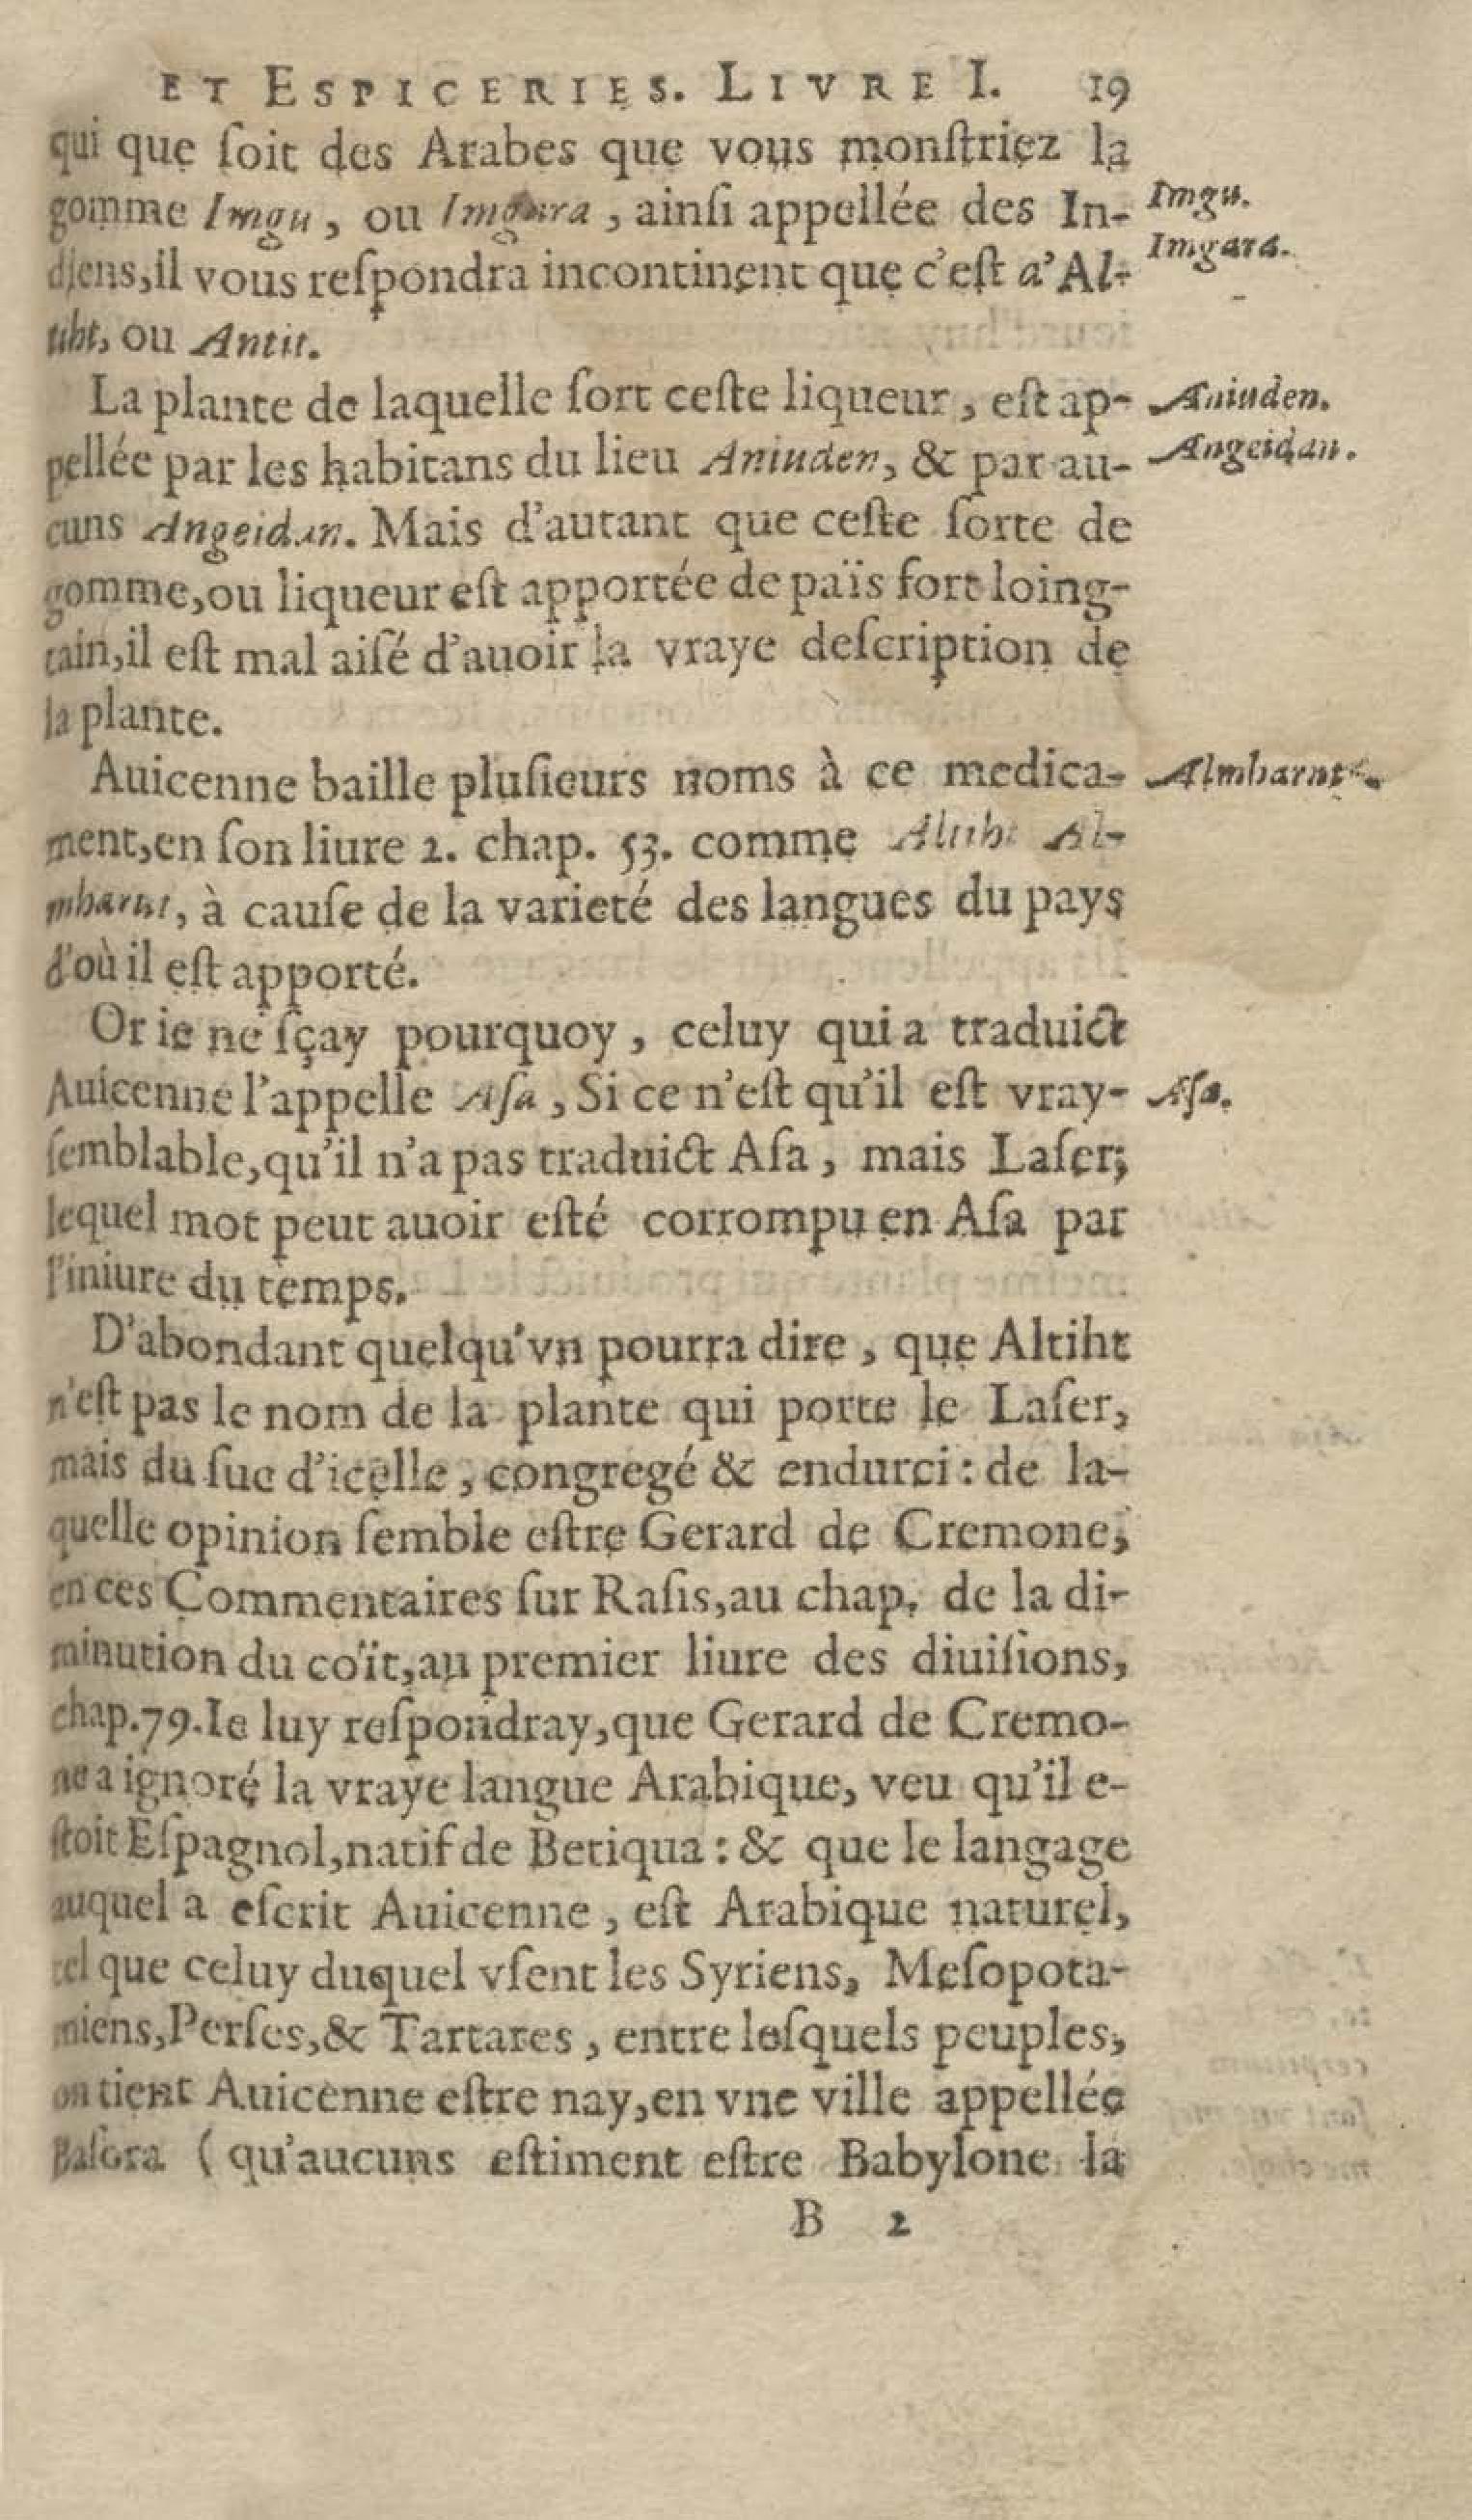 ET ESPICERIES. LIVRE I. 19
qui que ſoit des Arabes que vous monſtriez la
gomme Imgu, ou Imgara, ainſi appellée des In-
diens, il vous reſpondra incontinent que c'eſt a' Al-
tiht, ou Antit.
La plante de laquelle ſort ceſte liqueur, eſt ap-
pellée par les habitans du lieu Aniuden, & par au-
cuns Angeidan. Mais d'autant que ceſte ſorte de
gomme, ou liqueur eſt apportée de païs fort loing-
tain, il eſt mal aiſé d'auoir la vraye deſcription de
la plante.
Auicenne baille pluſieurs noms à ce medica-
ment, en ſon liure 2. chap. 53. comme Altiht Al-
mharut, à cauſe de la varieté des langues du pays
d'où il eſt apporté.
Or ie ne ſçay pourquoy, celuy qui a traduict
Auicenne l'appelle Aſa, Si ce n'eſt qu'il eſt vray-
ſemblable, qu'il n'a pas traduict Aſa, mais Laſer;
lequel mot peut auoir eſté corrompu en Aſa par
l'iniure du temps.
D'abondant quelqu'vn pourra dire, que Altiht
n'eſt pas le nom de la plante qui porte le Laſer,
mais du ſuc d'icelle, congregé & endurci: de la-
quelle opinion ſemble eſtre Gerard de Cremone,
en ces Commentaires ſur Raſis, au chap. de la di-
minution du coït, au premier liure des diuiſions,
chap. 79. Ie luy reſpondray, que Gerard de Cremo-
ne a ignoré la vraye langue Arabique, veu qu'il e-
ſtoit Eſpagnol, natif de Betiqua: & que le langage
auquel a eſcrit Auicenne, eſt Arabique naturel,
tel que celuy duquel vſent les Syriens, Meſopota-
miens, Perſes, & Tartares, entre leſquels peuples,
on tient Auicenne eſtre nay, en vne ville appellée
Baſora (qu'aucuns eſtiment eſtre Babylone la
B 2
Imgu.
Imgara.
Aniuden.
Angeidan.
Almharut.
Aſa.